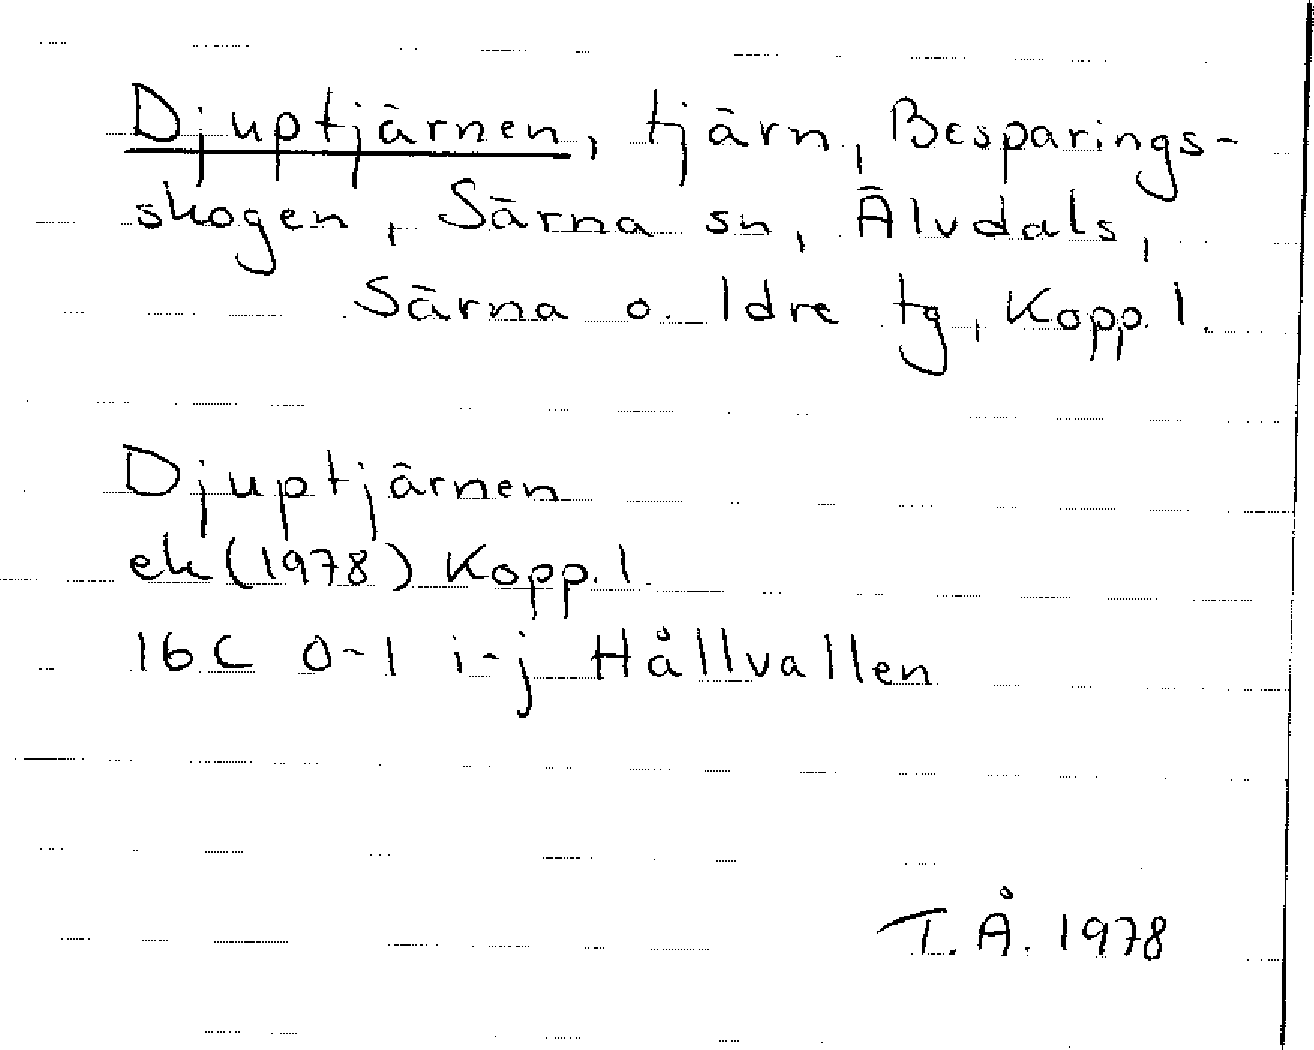 Djuptjärnen, tjärn, Besparings-
skogen, Särna sn, Älvdals,
Särna o. Idre tg, Kopp. l.
Djuptjärnen
ek (1978) Kopp. l.
16C 0-1 i-j Hållvallen
T. Å. 1978